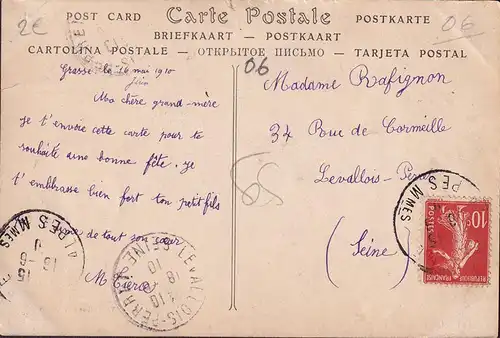 2€
06
POST CARD Carte Postale POSTKARTE
BRIEFKAART - POSTKAART
CARTOLINA POSTALE - ОТКРЫТОЕ ПИСЬМО - TARJETA POSTAL
06
Grasse le 16 mai 1910
Juin
Ma chère grand-mère
je t'envoie cette carte pour te
souhaite une bonne fête. je
t'embrasse bien fort ton petit fils
de tout son cœur
M
Madame Rafignon
34 Rue de Cormeille
Levallois-Perret
(Seine)
ALPES MMES
15-6
LEVALLOIS-PERRET
SEINE
PES MMES
10c
POSTES
REPUBLIQUE FRANÇAISE